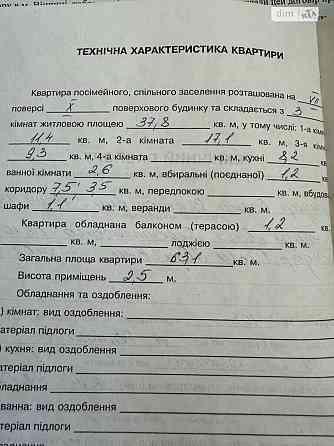 dim RIA
ТЕХНІЧНА ХАРАКТЕРИСТИКА КВАРТИРИ
Квартира посімейного, спільного заселення розташована на VII
поверсі X поверхового будинку та складається з 3
кімнат житловою площею 37,8 кв. м, у тому числі: 1-а кім
11,4 кв. м, 2-а кімната 17,1 кв. м, 3-я кім
9,3 кв. м, 4-а кімната кв. м, кухні 8,2 кв
ванної кімнати 2,6 кв. м, вбиральні (поєднаної) 1,2 кв
коридору 7,5 3,5 кв. м, передпокою кв. м, вбудов
шафи 1,1 кв. м, веранди кв. м.
Квартира обладнана балконом (терасою) 1,2 кв.
кв. м, лоджією кв. м.
Загальна площа квартири 63,1 кв. м.
Висота приміщень 2,5 м.
Обладнання та оздоблення:
) кімнат: вид оздоблення
атеріал підлоги
) кухня: вид оздоблення
атеріал підлоги
бладнання
ванна: вид оздоблення
атеріал підлоги